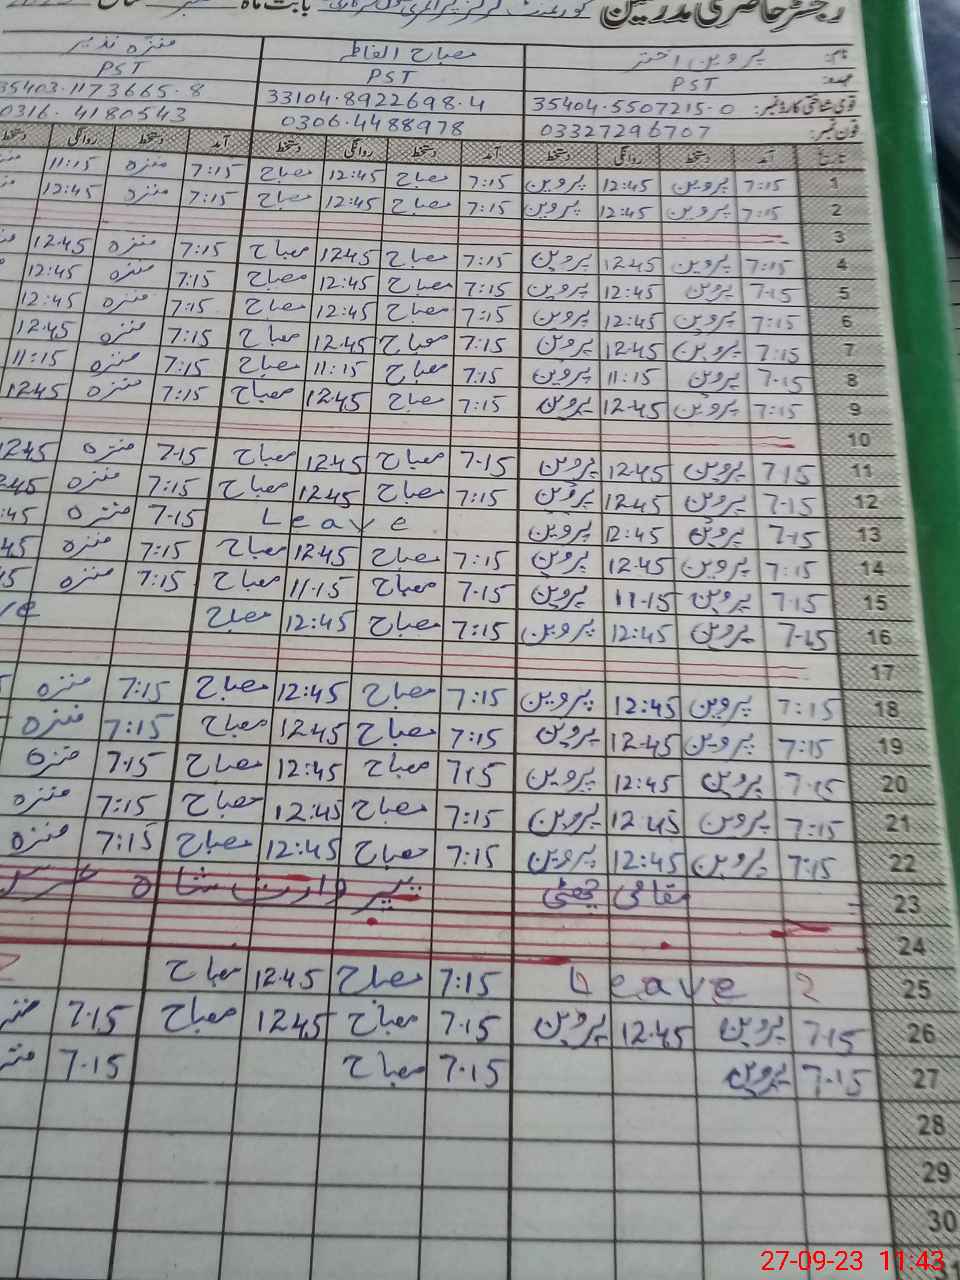 رجسٹر حاضری مدرسین گورنمنٹ گرلز پرائمری سکول بابت ماہ
نام: پروین اختر مصباح الفاطمہ منزہ نذیر
عہدہ: PST PST PST
قومی شناختی کارڈ نمبر: 35404-5507215-0 33104-8922698-4 35403-1173665-8
فون نمبر: 03327296707 0306-4488978 0316-4180543
تاریخ آمد دستخط روانگی دستخط آمد دستخط روانگی دستخط آمد دستخط روانگی دستخط
1 7:15 پروین 12:45 پروین 7:15 مصباح 12:45 مصباح 7:15 منزہ 11:15
2 7:15 پروین 12:45 پروین 7:15 مصباح 12:45 مصباح 7:15 منزہ 12:45
3
4 7:15 پروین 12:45 پروین 7:15 مصباح 12:45 مصباح 7:15 منزہ 12:45
5 7:15 پروین 12:45 پروین 7:15 مصباح 12:45 مصباح 7:15 منزہ 12:45
6 7:15 پروین 12:45 پروین 7:15 مصباح 12:45 مصباح 7:15 منزہ 12:45
7 7:15 پروین 12:45 پروین 7:15 مصباح 12:45 مصباح 7:15 منزہ 12:45
8 7:15 پروین 11:15 پروین 7:15 مصباح 11:15 مصباح 7:15 منزہ 11:15
9 7:15 پروین 12:45 پروین 7:15 مصباح 12:45 مصباح 7:15 منزہ 12:45
10
11 7:15 پروین 12:45 پروین 7:15 مصباح 12:45 مصباح 7:15 منزہ 12:45
12 7:15 پروین 12:45 پروین 7:15 مصباح 12:45 مصباح 7:15 منزہ 2:45
13 7:15 پروین 12:45 پروین Leave 7:15 منزہ :45
14 7:15 پروین 12:45 پروین 7:15 مصباح 12:45 مصباح 7:15 منزہ 45
15 7:15 پروین 11:15 پروین 7:15 مصباح 11:15 مصباح 7:15 منزہ 15
16 7:15 پروین 12:45 پروین 7:15 مصباح 12:45 مصباح ve
17
18 7:15 پروین 12:45 پروین 7:15 مصباح 12:45 مصباح 7:15 منزہ 5
19 7:15 پروین 12:45 پروین 7:15 مصباح 12:45 مصباح 7:15 منزہ
20 7:15 پروین 12:45 پروین 7:15 مصباح 12:45 مصباح 7:15 منزہ
21 7:15 پروین 12:45 پروین 7:15 مصباح 12:45 مصباح 7:15 منزہ
22 7:15 پروین 12:45 پروین 7:15 مصباح 12:45 مصباح 7:15 منزہ
23 مقامی چھٹی پیر وارث شاہ عرس
24
25 2 Leave 7:15 مصباح 12:45 مصباح
26 7:15 پروین 12:45 پروین 7:15 مصباح 12:45 مصباح 7:15 منزہ
27 7:15 پروین 7:15 مصباح 7:15 منزہ
28
29
30
31
27-09-23 11:43